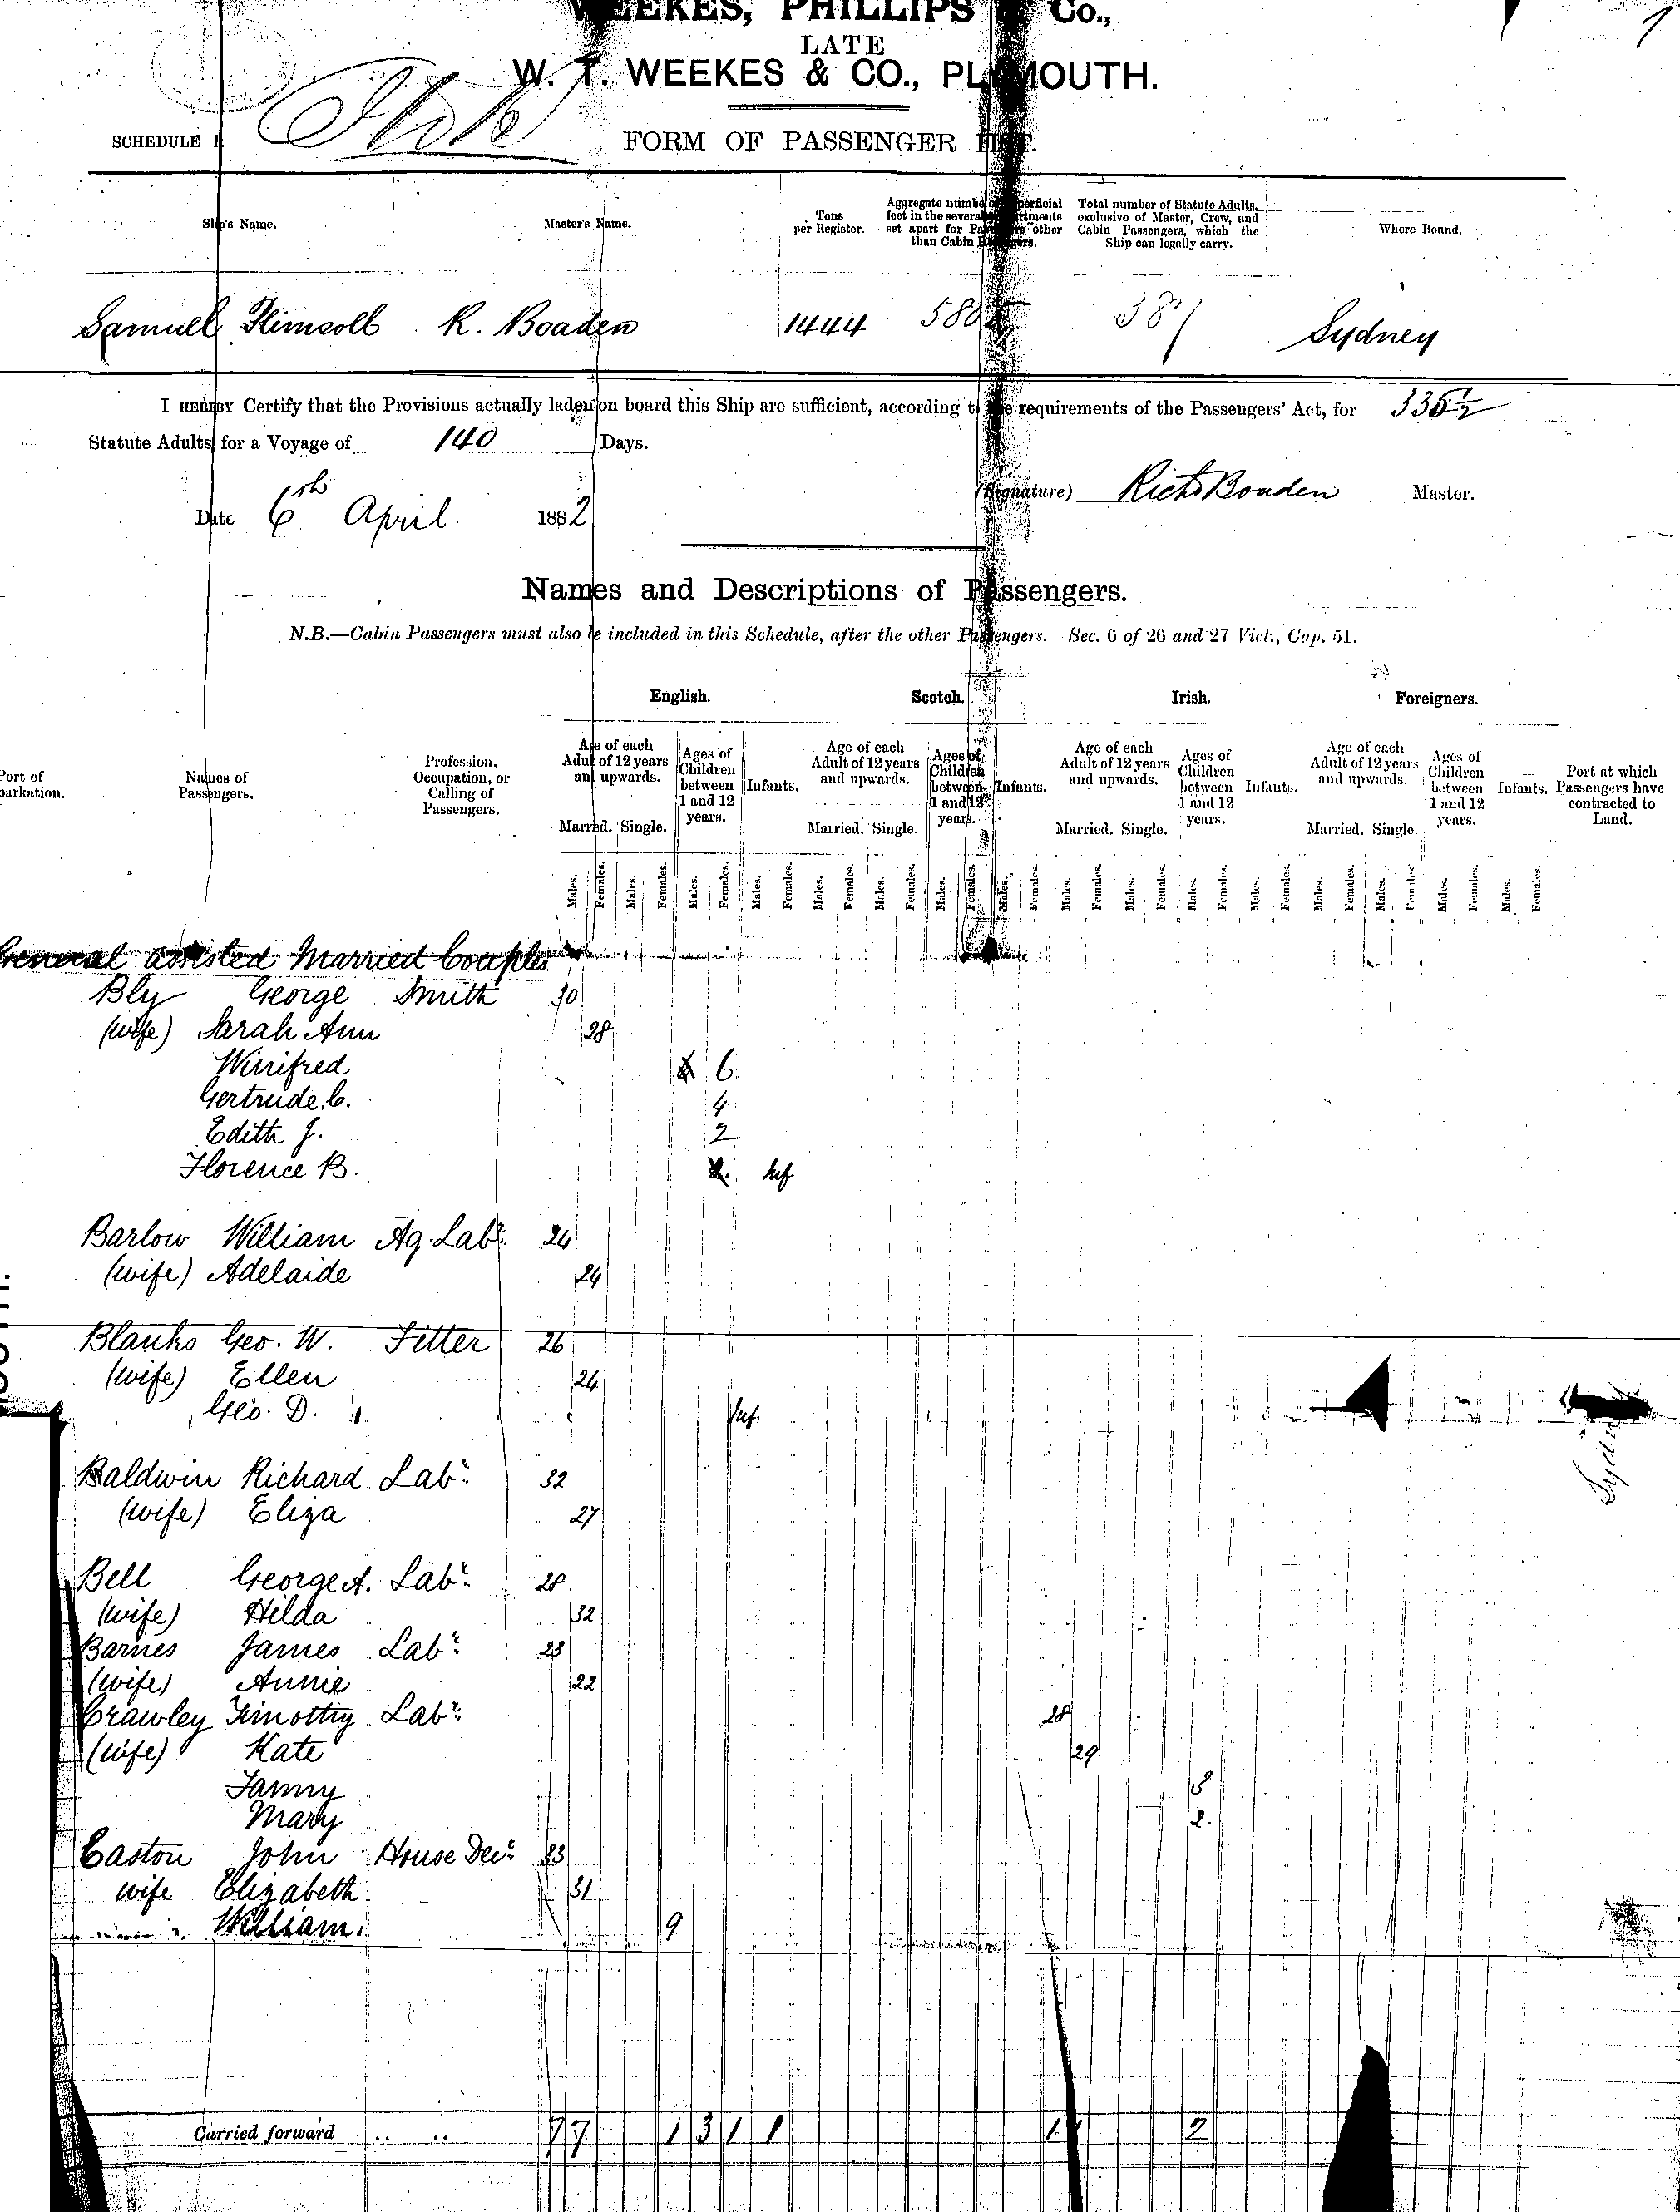 WEEKES, PHILLIPS & Co.,
LATE
W. T. WEEKES & CO., PLYMOUTH.
SCHEDULE
FORM OF PASSENGER LIST.
Ship's Name.
Master's Name.
Tons per Register.
Aggregate number of superficial feet in the several compartments set apart for Passengers other than Cabin Passengers.
Total number of Statute Adults, exclusive of Master, Crew, and Cabin Passengers, which the Ship can legally carry.
Where Bound.
Samuel Plimsoll R. Boaden 1444 387 Sydney
I HEREBY Certify that the Provisions actually laden on board this Ship are sufficient, according to the requirements of the Passengers' Act, for 336½
Statute Adults for a Voyage of 140 Days.
(Signature) Richd Boaden Master.
Date 6th April. 1882
Names and Descriptions of Passengers.
N.B.—Cabin Passengers must also be included in this Schedule, after the other Passengers. Sec. 6 of 26 and 27 Vict., Cap. 51.
English. Scotch. Irish. Foreigners.
Port of Embarkation.
Names of Passengers.
Profession, Occupation, or Calling of Passengers.
Age of each Adult of 12 years and upwards. Ages of Children between 1 and 12 years. Infants.
Age of each Adult of 12 years and upwards. Ages of Children between 1 and 12 years. Infants.
Age of each Adult of 12 years and upwards. Ages of Children between 1 and 12 years. Infants.
Age of each Adult of 12 years and upwards. Ages of Children between 1 and 12 years. Infants.
Port at which Passengers have contracted to Land.
Married. Single. Married. Single. Married. Single. Married. Single.
Males. Females. Males. Females. Males. Females. Males. Females. Males. Females. Males. Females. Males. Females. Males. Females. Males. Females. Males. Females. Males. Females. Males. Females. Males. Females. Males. Females. Males. Females. Males. Females.
General assisted Married Couples
Bly George Smith 30
(wife) Sarah Ann 28
Winifred 6
Gertrude C. 4
Edith J. 2
Florence B. Inf
Barlow William Ag. Labr. 24
(wife) Adelaide 24
Blanks Geo. W. Fitter 26
(wife) Ellen 24
Geo. D. Inf.
Baldwin Richard Labr. 32
(wife) Eliza 27
Bell George A. Labr. 28
(wife) Hilda 32
Barnes James Labr. 23
(wife) Annie 22
Crawley Timothy Labr. 28
(wife) Kate 29
Fanny
Mary 2
Easton John House Decr. 33
wife Elizabeth 31
William. 9
Sydney
Carried forward .. .. 7 7 1 3 1 1 1 2